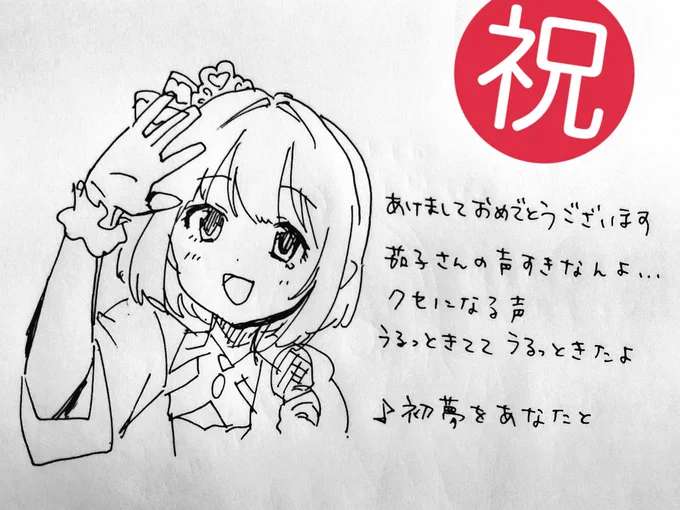 祝
あけましておめでとうございます
茄子さんの声すきなんよ...
クセになる声
うるっときててうるっときたよ
♪初夢をあなたと